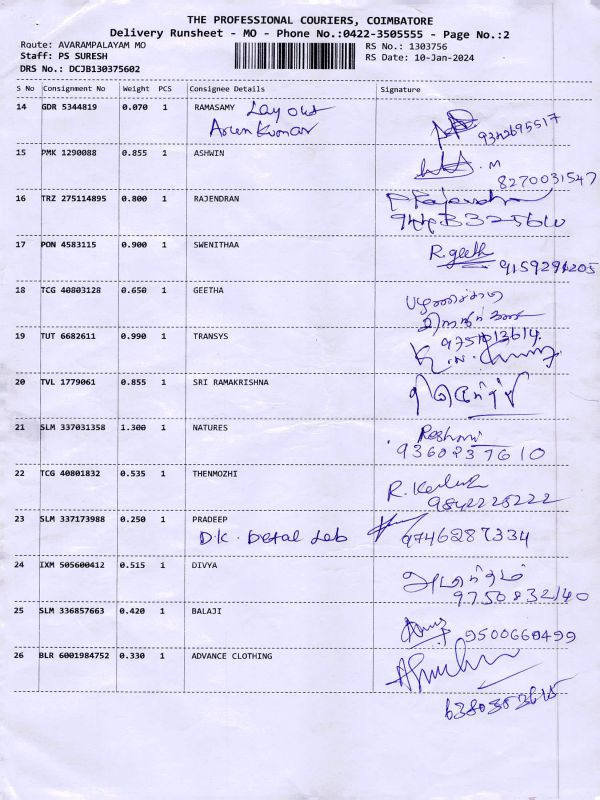 THE PROFESSIONAL COURIERS, COIMBATORE
Delivery Runsheet - MO - Phone No.:0422-3505555 - Page No.:2
Route: AVARAMPALAYAM MO RS No.: 1303756
Staff: PS SURESH RS Date: 10-Jan-2024
DRS No.: DCJB130375602
S No Consignment No Weight PCS Consignee Details Signature
14 GDR 5344819 0.070 1 RAMASAMY Layout
Arun Kumar
9342695517
15 PMK 1290088 0.855 1 ASHWIN
8270031547
16 TRZ 275114895 0.800 1 RAJENDRAN
17 PON 4583115 0.900 1 SWENITHAA R.geeth
9159291205
18 TCG 40803128 0.650 1 GEETHA
19 TUT 6682611 0.990 1 TRANSYS
20 TVL 1779061 0.855 1 SRI RAMAKRISHNA
21 SLM 337031358 1.300 1 NATURES Reshmi
9360837610
22 TCG 40801832 0.535 1 THENMOZHI
9842228222
23 SLM 337173988 0.250 1 PRADEEP
D.K. Detal Lab 9746287334
24 IXM 505600412 0.515 1 DIVYA
9750832140
25 SLM 336857663 0.420 1 BALAJI
9500660499
26 BLR 6001984752 0.330 1 ADVANCE CLOTHING